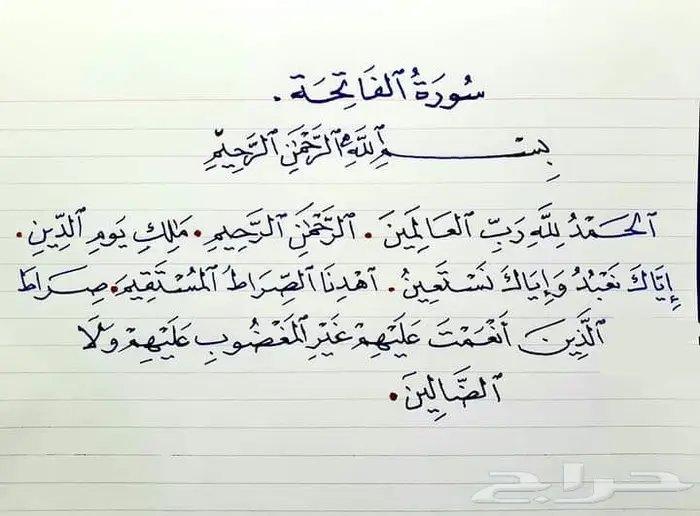 سُورَةُ ٱلفَاتِحَة .
بِسْمِ ٱللَّهِ ٱلرَّحْمَٰنِ ٱلرَّحِيْمِ
ٱلحَمْدُ لِلَّهِ رَبِّ ٱلعَالَمِينَ . ٱلرَّحْمَٰنِ ٱلرَّحِيمِ . مَٰلِكِ يَومِ ٱلدِّينِ .
إِيَّاكَ نَعْبُدُ وَإِيَاكَ نَسْتَعِينُ . ٱهْدِنَا ٱلصِّرَاطَ ٱلمُسْتَقِيمَ . صِرَاطَ
ٱلَّذِينَ أَنْعَمْتَ عَلَيْهِمْ غَيْرِ ٱلمَغْضُوبِ عَلَيْهِمْ وَلَا
ٱلضَّالِينَ .
حراج